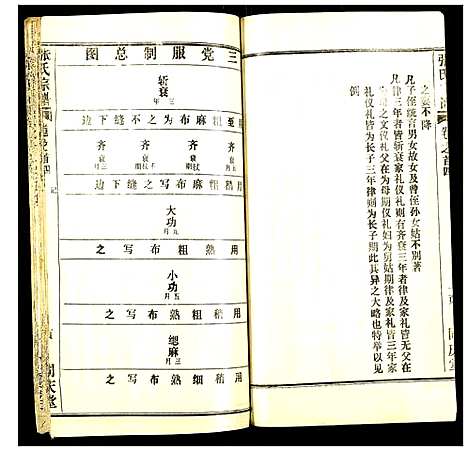 之妻不降
凡子侄统言男女故女及曾侄孙女姑不别著
凡律三年者皆斩衰家礼仪礼则有齐衰三年者律及家礼皆无父在
为母之文仪礼父在为母期仪礼妇为舅姑期律及家礼皆三年家
礼仪礼皆为长子三年律则为长子期此其异之大略也特举以见
例
三党服制总图
斩衰三年
用至粗麻布为之不缝下边
齐衰三月
齐衰不杖期
齐衰杖期
齐衰五月
用粗麻布写之缝下边
大功九月
用粗熟布写之
小功五月
用稍粗熟布写之
缌麻三月
用稍细熟布写之
张氏宗谱
卷之首四